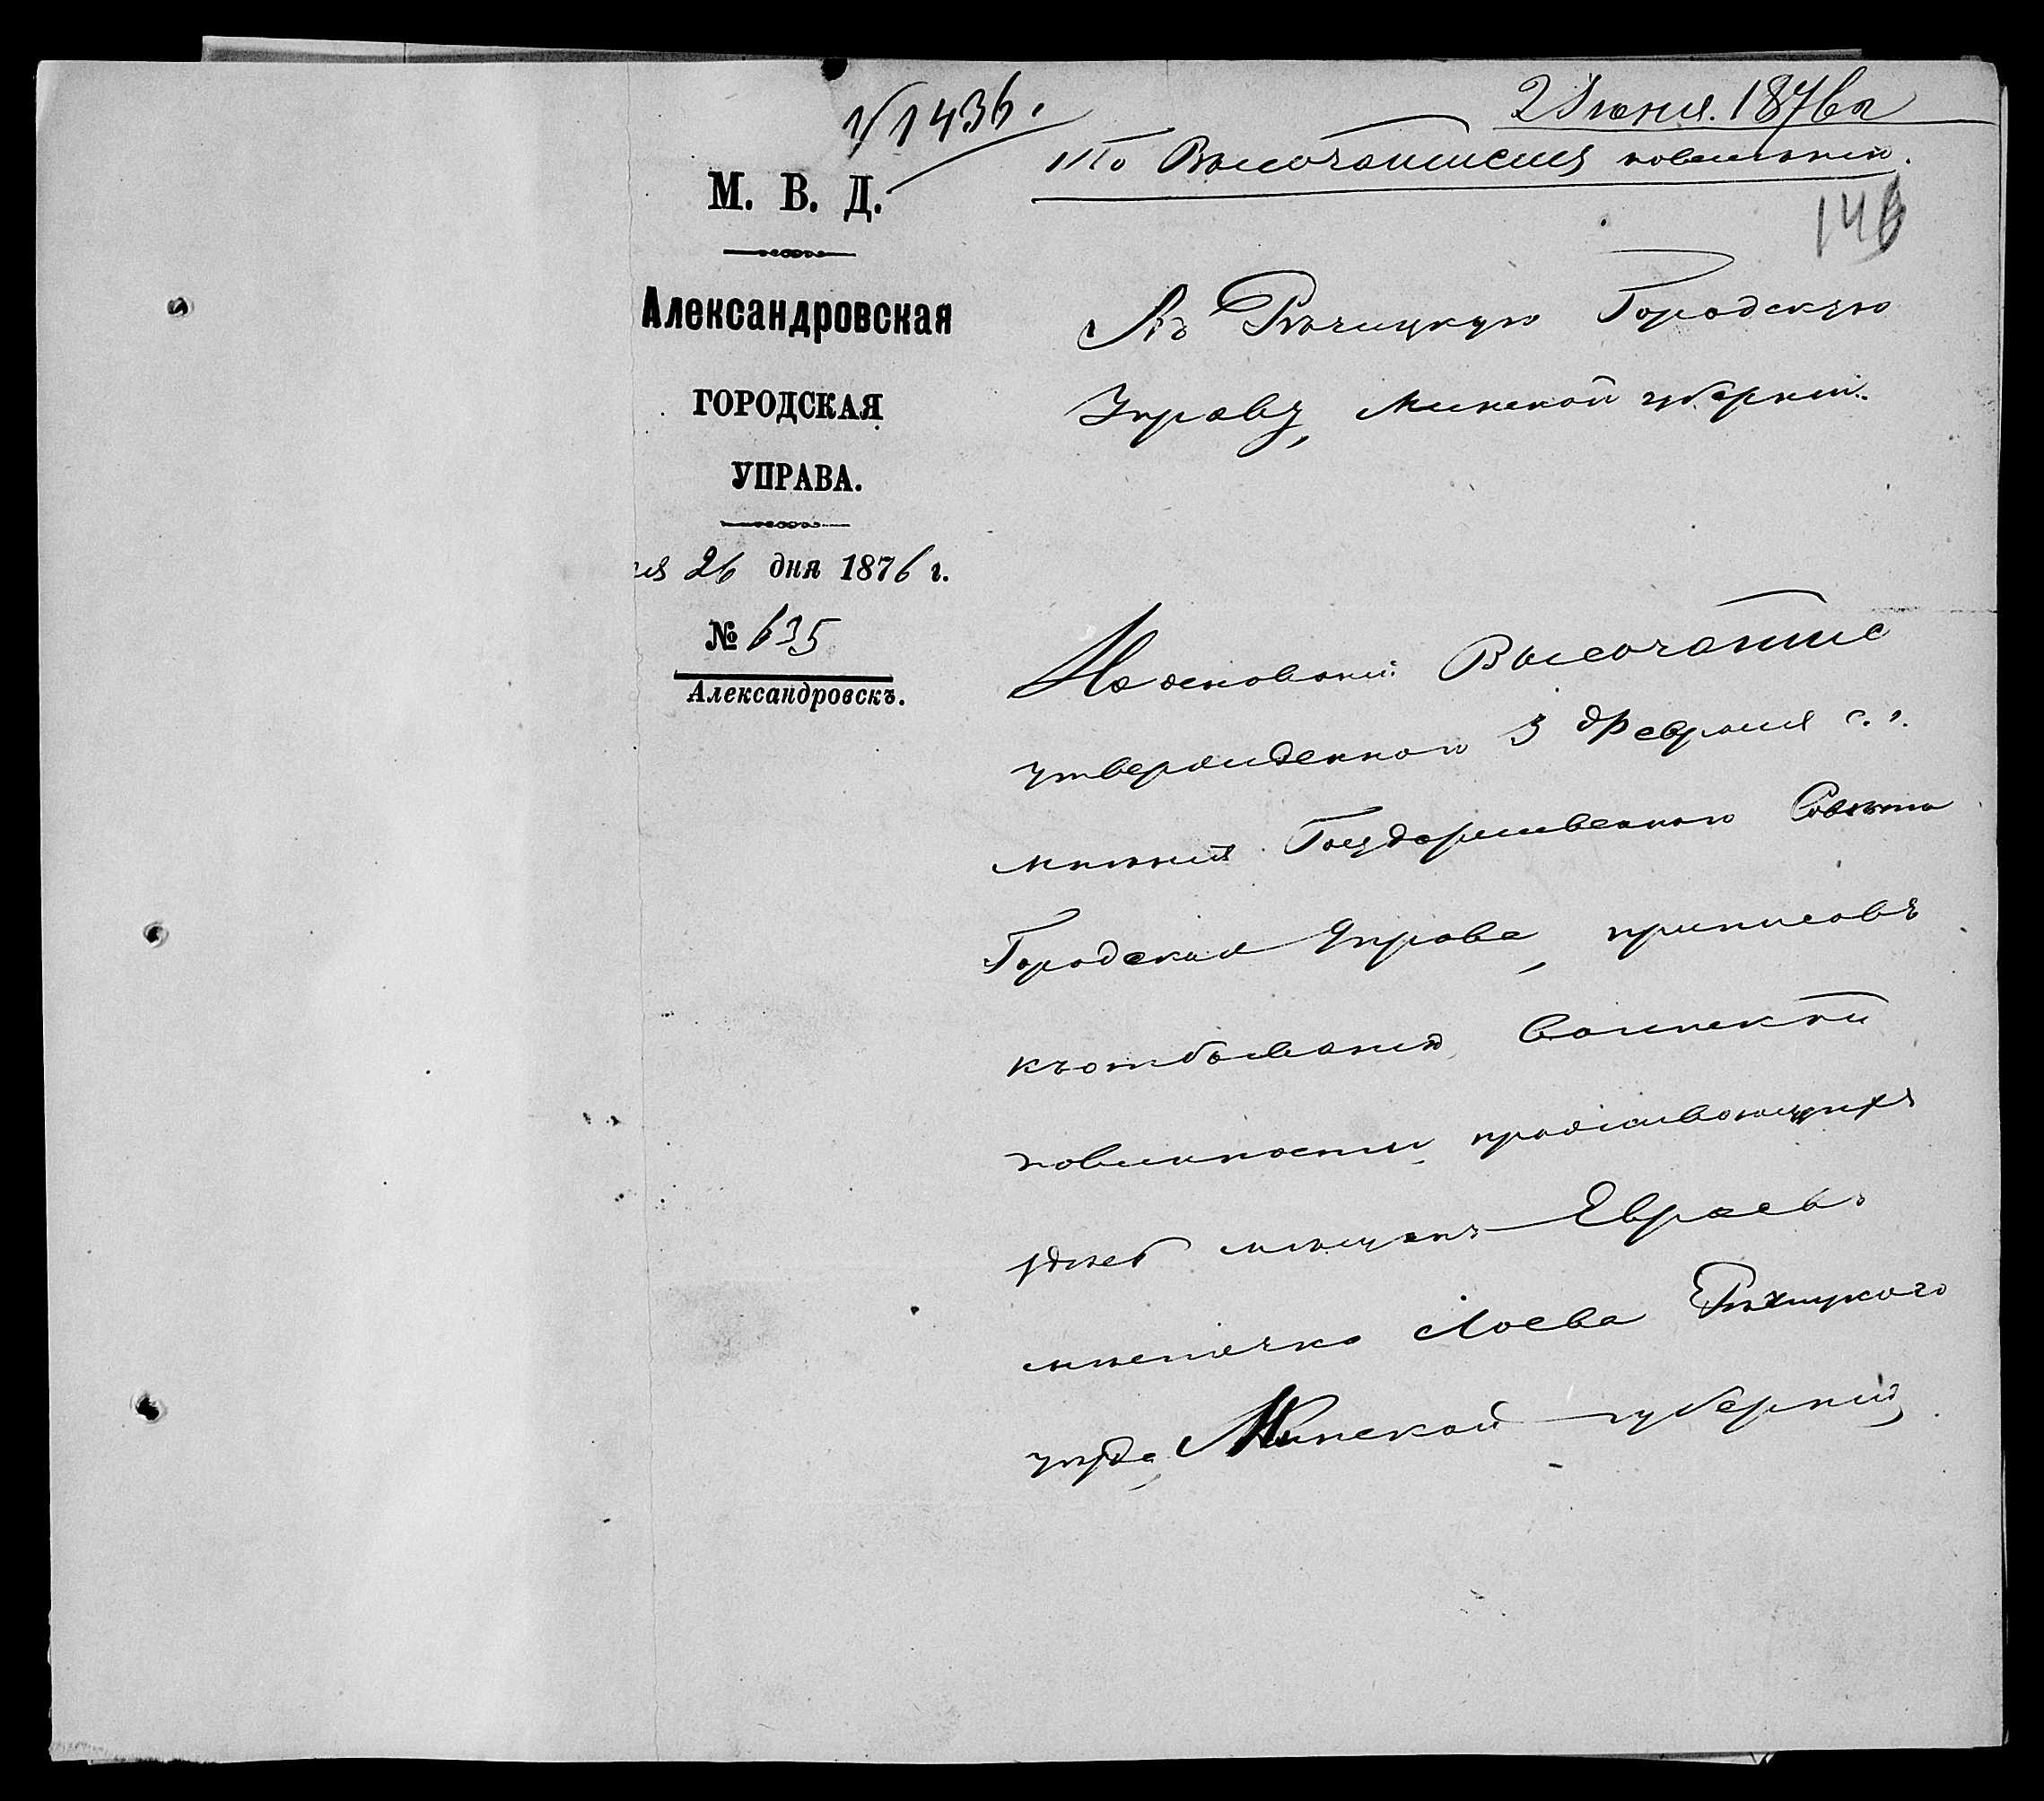 № 1436.
2 Июня. 1876 г
По Высочайшему повелѣнію.
146
М. В. Д.
Александровская
ГОРОДСКАЯ
УПРАВА.
ія 26 дня 1876 г.
№ 635
Александровскъ.
Въ Рѣчицкую Городскую
Управу, Минской губерніи.
На основаніи Высочайше
утвержденнаго 3 Февраля с. г.
мнѣнія Государственнаго Совѣта
Городская Управа, приписавъ
къ отбыванію воинской
повинности проживающихъ
здѣсь мѣщанъ Евреевъ
мѣстечка Лоева Рѣчицкаго
уѣзда, Минской губерніи,